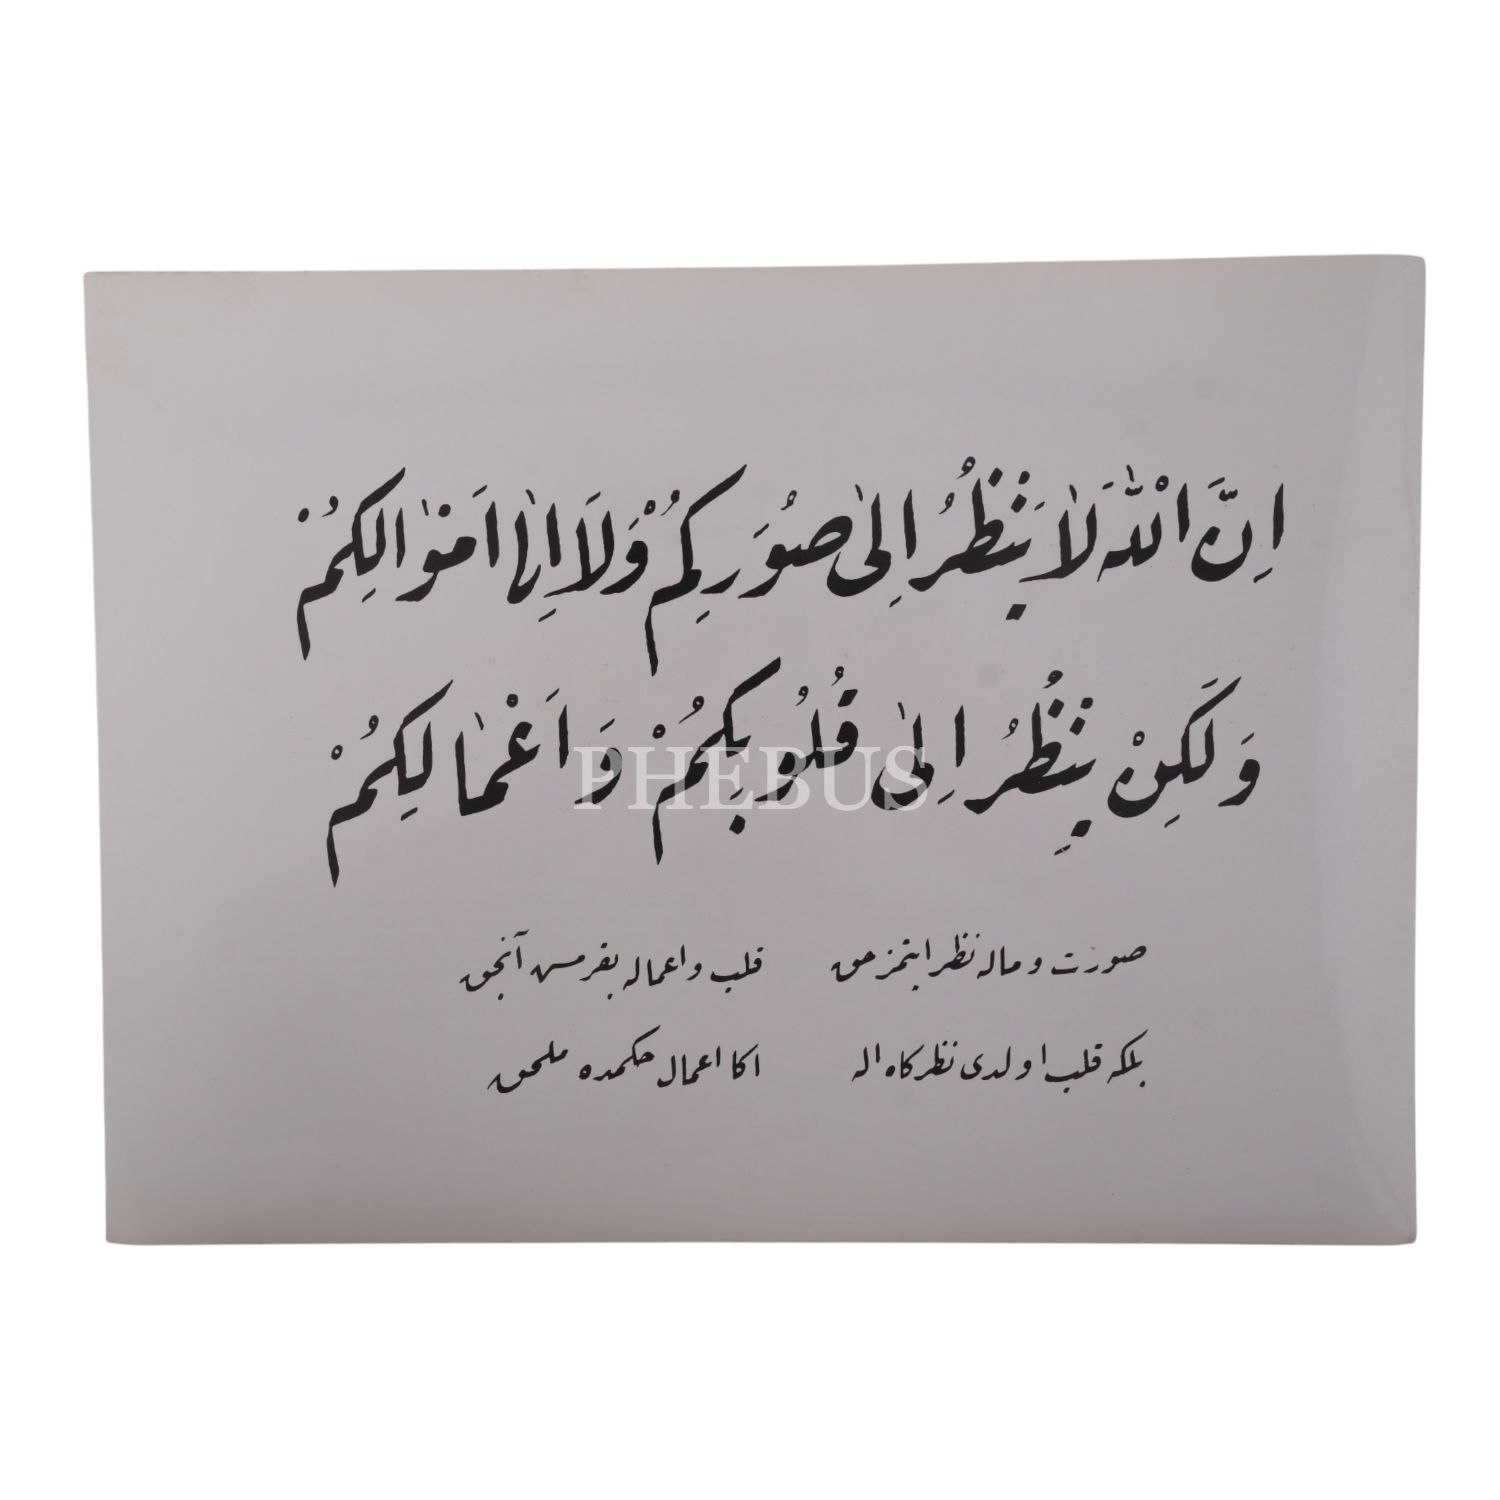 اِنَّ اللّٰهَ لَا يَنْظُرُ اِلٰى صُوَرِكُمْ وَلَا اِلٰى اَمْوَالِكُمْ
وَلٰكِنْ يَنْظُرُ اِلٰى قُلُوبِكُمْ وَاَعْمَالِكُمْ
صورت و ماله نظر ايتمز حق قلب و اعماله بقرمس آنجق
بلكه قلب اولدى نظركاه اله اكا اعمال حكمده ملحق
PHEBUS